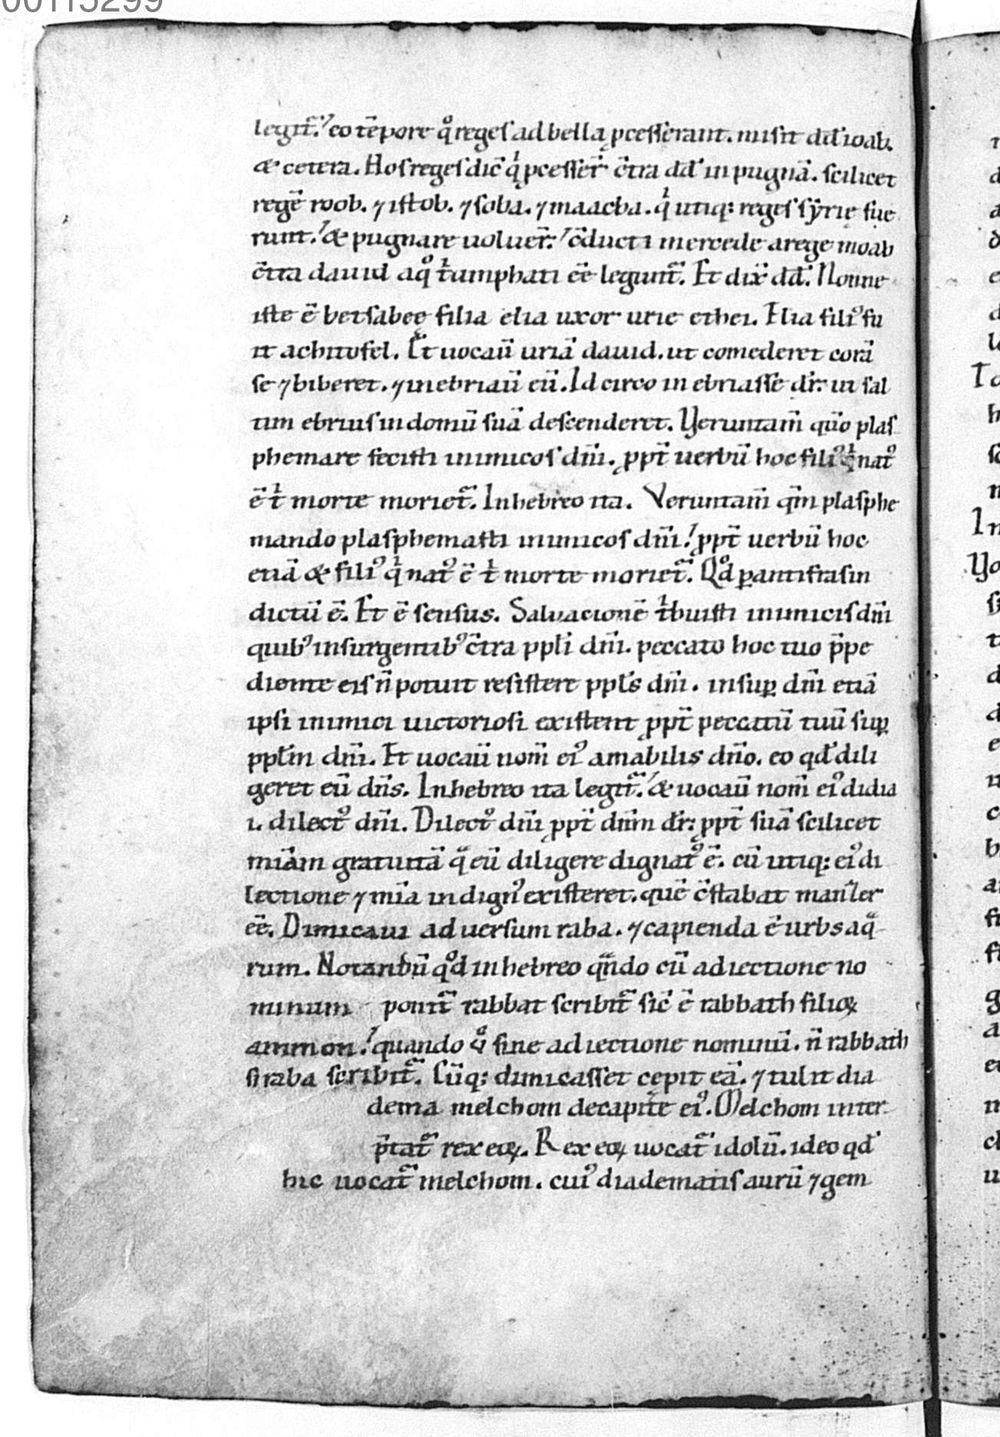 00115299
legit̄. eo tēpore qͦ reges ad bella ꝓcesserant. misit dd̄ ioab.
& cetera. Hos reges dic̄ qͥ ꝓcesser̄ c̄tra dd̄ in pugnā. scilicet
regē roob. ⁊ istob. ⁊ soba. ⁊ maacha. qͥ utiqꝫ reges syrię fue
runt. & pugnare uoluer̄. c̄ducti mercede a rege moab
c̄tra dauid a qͦ tͥumphati ēē legunt̄. Et dix̄ dd̄. Nonne
iste ē betsabeę filia elia uxor urie ethei. Elia filiꝰ fu
it achitofel. Et uocaū uriā dauid. ut comederet corā
se ⁊ biberet. ⁊ inebriaū eū. Idcirco inebriasse dr̄. ut sal
tim ebrius in domū suā descenderet. Veruntam̄ qm̄o plas
phemare fecisti inimicos dn̄i. ꝓpt̄ uerbū hoc filiꝰ qͥ natꝰ
ē tͥ morte moriet̄. In hebreo ita. Veruntam̄ qm̄ plasphe
mando plasphemasti inimicos dn̄i. ꝓpt̄ uerbū hoc
etiā & filiꝰ qͥ natꝰ ē tͥ morte moriet̄. Qͦd ꝑ antifrasin
dictū ē. Et ē sensus. Saluacionē tͥbuisti inimicis dn̄i
quibꝰ insurgentibꝰ c̄tra ppl̄i dn̄i. peccato hoc tuo p̄pe
diente eis n̄ potuit resistere ppl̄s dn̄i. insuꝑ dn̄i etiā
ipsi inimici uictoriosi existent ꝓpt̄ peccatū tuū suꝑ
ppl̄m dn̄i. Et uocaū nom̄ eiꝰ amabilis dn̄o. eo qd̄ dili
geret eū dn̄s. In hebreo ita legit̄. & uocaū nom̄ eiꝰ didia
.i. dilectꝰ dn̄i. Dilectꝰ dn̄i ꝓpt̄ dn̄m dr̄. ꝓpt̄ suā scilicet
miām gratuitā qᷓ eū diligere dignatꝰ ē. cū utiqꝫ eiꝰ di
lectione ⁊ mīa indignꝰ existeret. quē c̄stabat manꝉer
ēē. Dimicaui aduersum raba. ⁊ capienda ē urbs aqᷓ
rum. Notandū qͦd in hebreo qᷓndo cū adiectione no
minum ponit̄ rabbat scribit̄ sic̄ ē rabbath filioꝝ
ammon. quando qͦ sine adiectione nominū. n̄ rabbath
s; raba scribit̄. Cūqꝫ dimicasset cepit eā. ⁊ tulit dia
dema melchom de capite eiꝰ. Melchom inter
p̄tat̄ rex eoꝝ. Rex eoꝝ uocat̄ idolū. ideo qd̄
hic uocat̄ melchom. cuiꝰ diadematis aurū ⁊ gem